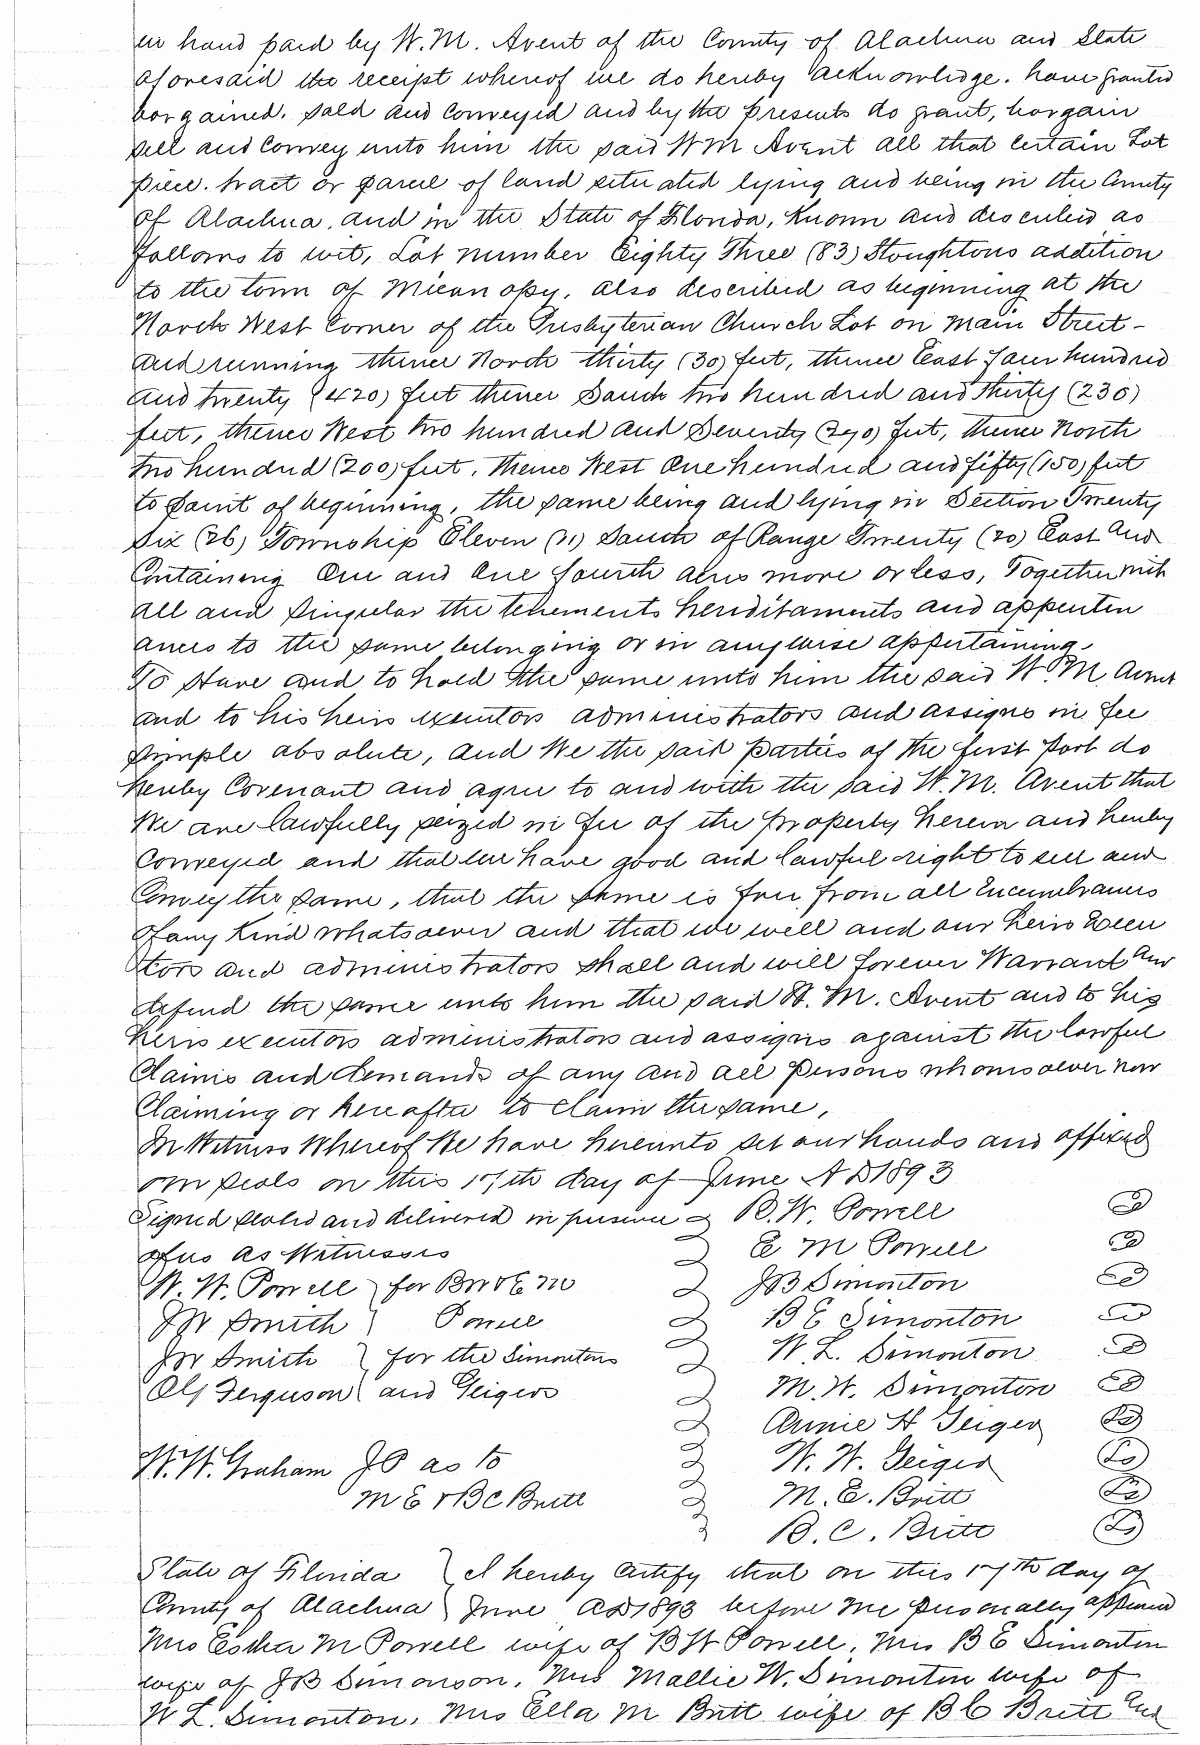 in hand paid by W. M. Avent of the County of Alachua and State
aforesaid the receipt whereof we do hereby acknowledge. have granted
bargained. sold and conveyed and by the presents do grant, bargain
sell and convey unto him the said W M Avent all that certain Lot
piece. tract or parcel of land situated lying and being in the County
of Alachua. and in the State of Florida, Known and described as
follows to wit, Lot number Eighty Three (83) Stoughtons addition
to the town of Micanopy. also described as beginning at the
North West Corner of the Presbyterian Church Lot on Main Street -
and running thence North thirty (30) feet, thence East four hundred
and twenty (420) feet thence South two hundred and thirty (230)
feet, thence West two hundred and Seventy (270) feet, thence North
two hundred (200) feet. thence West One hundred and fifty (150) feet
to point of beginning, the same being and lying in Section Twenty
Six (26) Township Eleven (11) South of Range Twenty (20) East and
Containing One and One fourth acres more or less, Together with
all and singular the tenements hereditaments and appurten
ances to the same belonging or in anywise appertaining.
To Have and to hold the same unto him the said W. M. Avent
and to his heirs executors administrators and assigns in fee
simple absolute, and We the said parties of the first part do
hereby Covenant and agree to and with the said W. M. Avent that
We are lawfully seized in fee of the property herein and hereby
Conveyed and that we have good and lawful right to sell and
Convey the same, that the same is free from all Encumbrances
of any Kind whatsoever and that we will and our heirs Execu
tors and administrators shall and will forever Warrant and
defend the same unto him the said W. M. Avent and to his
heirs executors administrators and assigns against the lawful
Claims and demands of any and all persons whomsoever now
Claiming or hereafter to claim the same,
In Witness Whereof We have hereunto set our hands and affixed
our seals on this 17th day of June A D 1893
Signed sealed and delivered in presence B. W. Powell
of us as Witnesses E M Powell
W. W. Powell } for BW & E M J B Simonton
J W Smith } Powell B E Simonton
J W Smith } for the Simontons W. L. Simonton
Ferguson } and Geigers M. W. Simonton
Annie H Geiger
W. W. Graham J P as to W. W. Geiger
M E & B C Britt M. E. Britt
B. C. Britt
State of Florida } I hereby Certify that on this 17th day of
County of Alachua } June AD 1893 before me personally appeared
Mrs M Powell wife of B W Powell, Mrs B E Simonton
wife of J B Simonson, Mrs Mallie W. Simonton wife of
W L. Simonton, Mrs Ella M Britt wife of B C Britt and